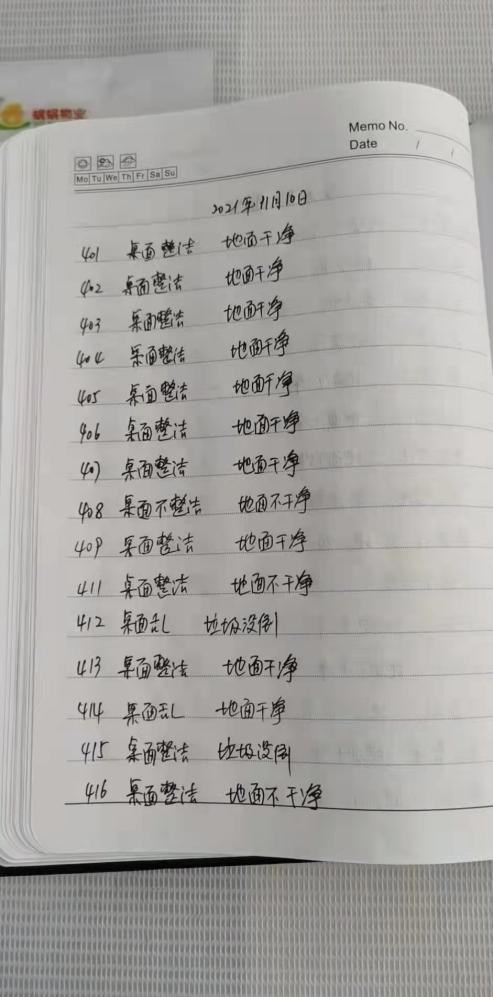 Memo No.
Date / /
Mo Tu We Th Fr Sa Su
2021年11月10日
401 桌面整洁 地面干净
402 桌面整洁 地面干净
403 桌面整洁 地面干净
404 桌面整洁 地面干净
405 桌面整洁 地面干净
406 桌面整洁 地面干净
407 桌面整洁 地面干净
408 桌面不整洁 地面不干净
409 桌面整洁 地面干净
411 桌面整洁 地面不干净
412 桌面乱 垃圾没倒
413 桌面整洁 地面干净
414 桌面乱 地面干净
415 桌面整洁 垃圾没倒
416 桌面整洁 地面不干净